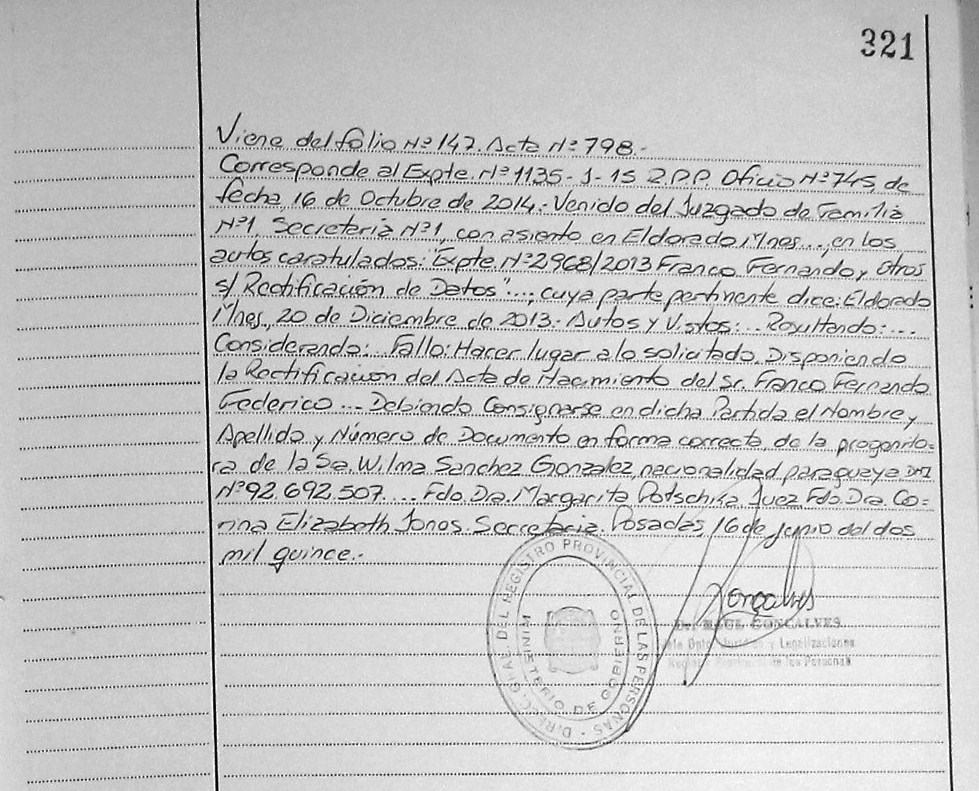 321
Viene del folio Nº 147. Acta Nº 798.-
Corresponde al Expte. Nº 1135-J-15 R.P.P. Oficio Nº 745, de
fecha, 16 de Octubre de 2014.- Venido del Juzgado de Familia
Nº1, Secretaria Nº1, con asiento en Eldorado, Mnes..., en los
autos caratulados: "Expte. Nº 2968/2013 Franco Fernando y otros
s/ Rectificación de Datos"..., cuya parte pertinente dice: Eldorado
Mnes, 20 de Diciembre de 2013.- Autos y Vistos:... Resultando:...
Considerando:... Fallo: Hacer lugar a lo solicitado, Disponiendo
la Rectificación del Acta de Nacimiento del Sr. Franco Fernando
Federico... Debiendo Consignarse en dicha Partida el Nombre y
Apellido y Número de Documento en forma correcta de la progenito-
ra de la Sa. Wilma Sanchez Gonzalez, nacionalidad paraguaya DNI
Nº 92.692.507.... Fdo. Dra. Margarita Potschka Juez Fdo. Dra. Co-
rina Elizabeth Jones. Secretaria. Posadas, 16 de Junio del dos
mil quince.-
DIREC. GRAL. DEL REGISTRO PROVINCIAL DE LAS PERSONAS
MINISTERIO DE GOBIERNO
Gonçalves
RAUL GONCALVES
Dpto. Jurídico y Legalizaciones
Registro Provincial de las Personas